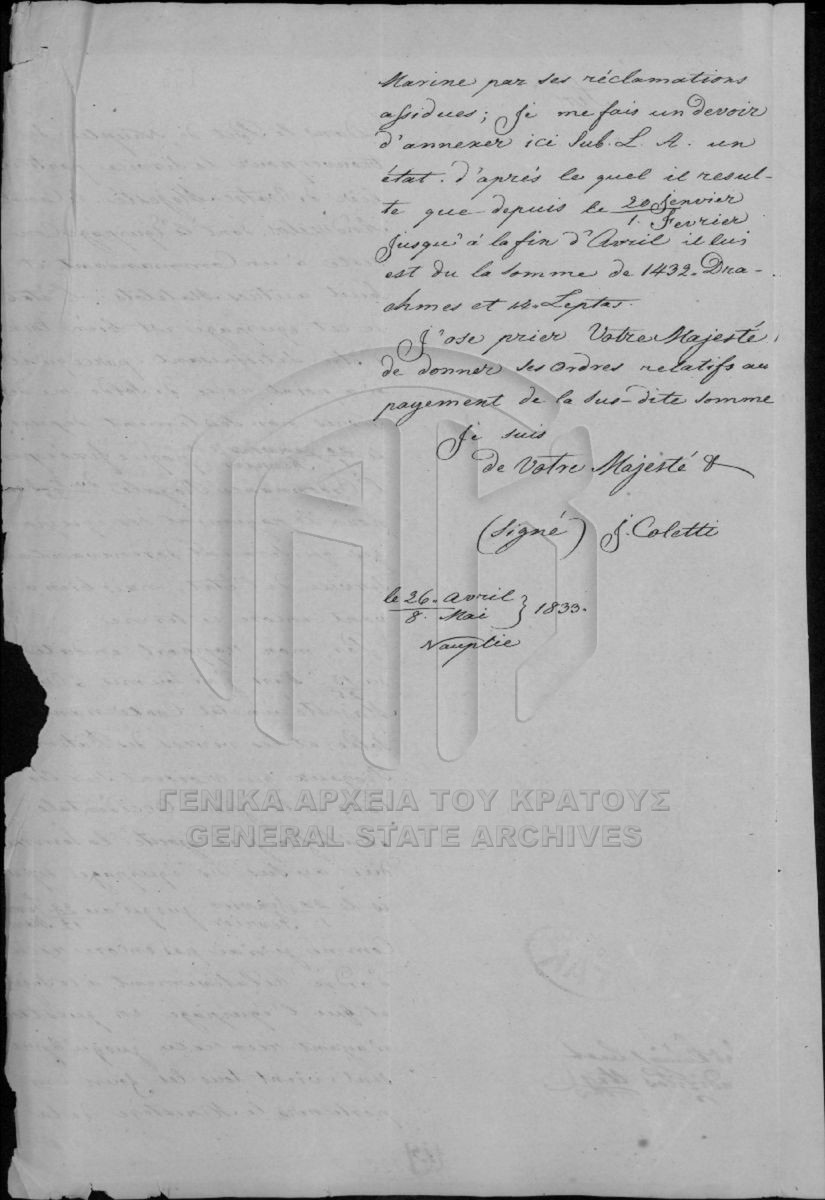 Marine par ses réclamations
assidues; Je me fais un devoir
d'annexer ici Sub. L. A. un
état. d'aprés le quel il resul-
te que depuis le 20 Jenvier
1. Fevrier
Jusqu'à la fin d'Avril il lui
est du la somme de 1432. Dra-
chmes et Leptas.
J'ose prier Votre Majesté,
de donner ses ordres relatifs au
payement de la sus-dite somme
Je suis
de Votre Majesté &
(signé) J. Coletti
le 26. Avril
8. Mai } 1833.
Nauplie
ΓΕΝΙΚΑ ΑΡΧΕΙΑ ΤΟΥ ΚΡΑΤΟΥΣ
GENERAL STATE ARCHIVES